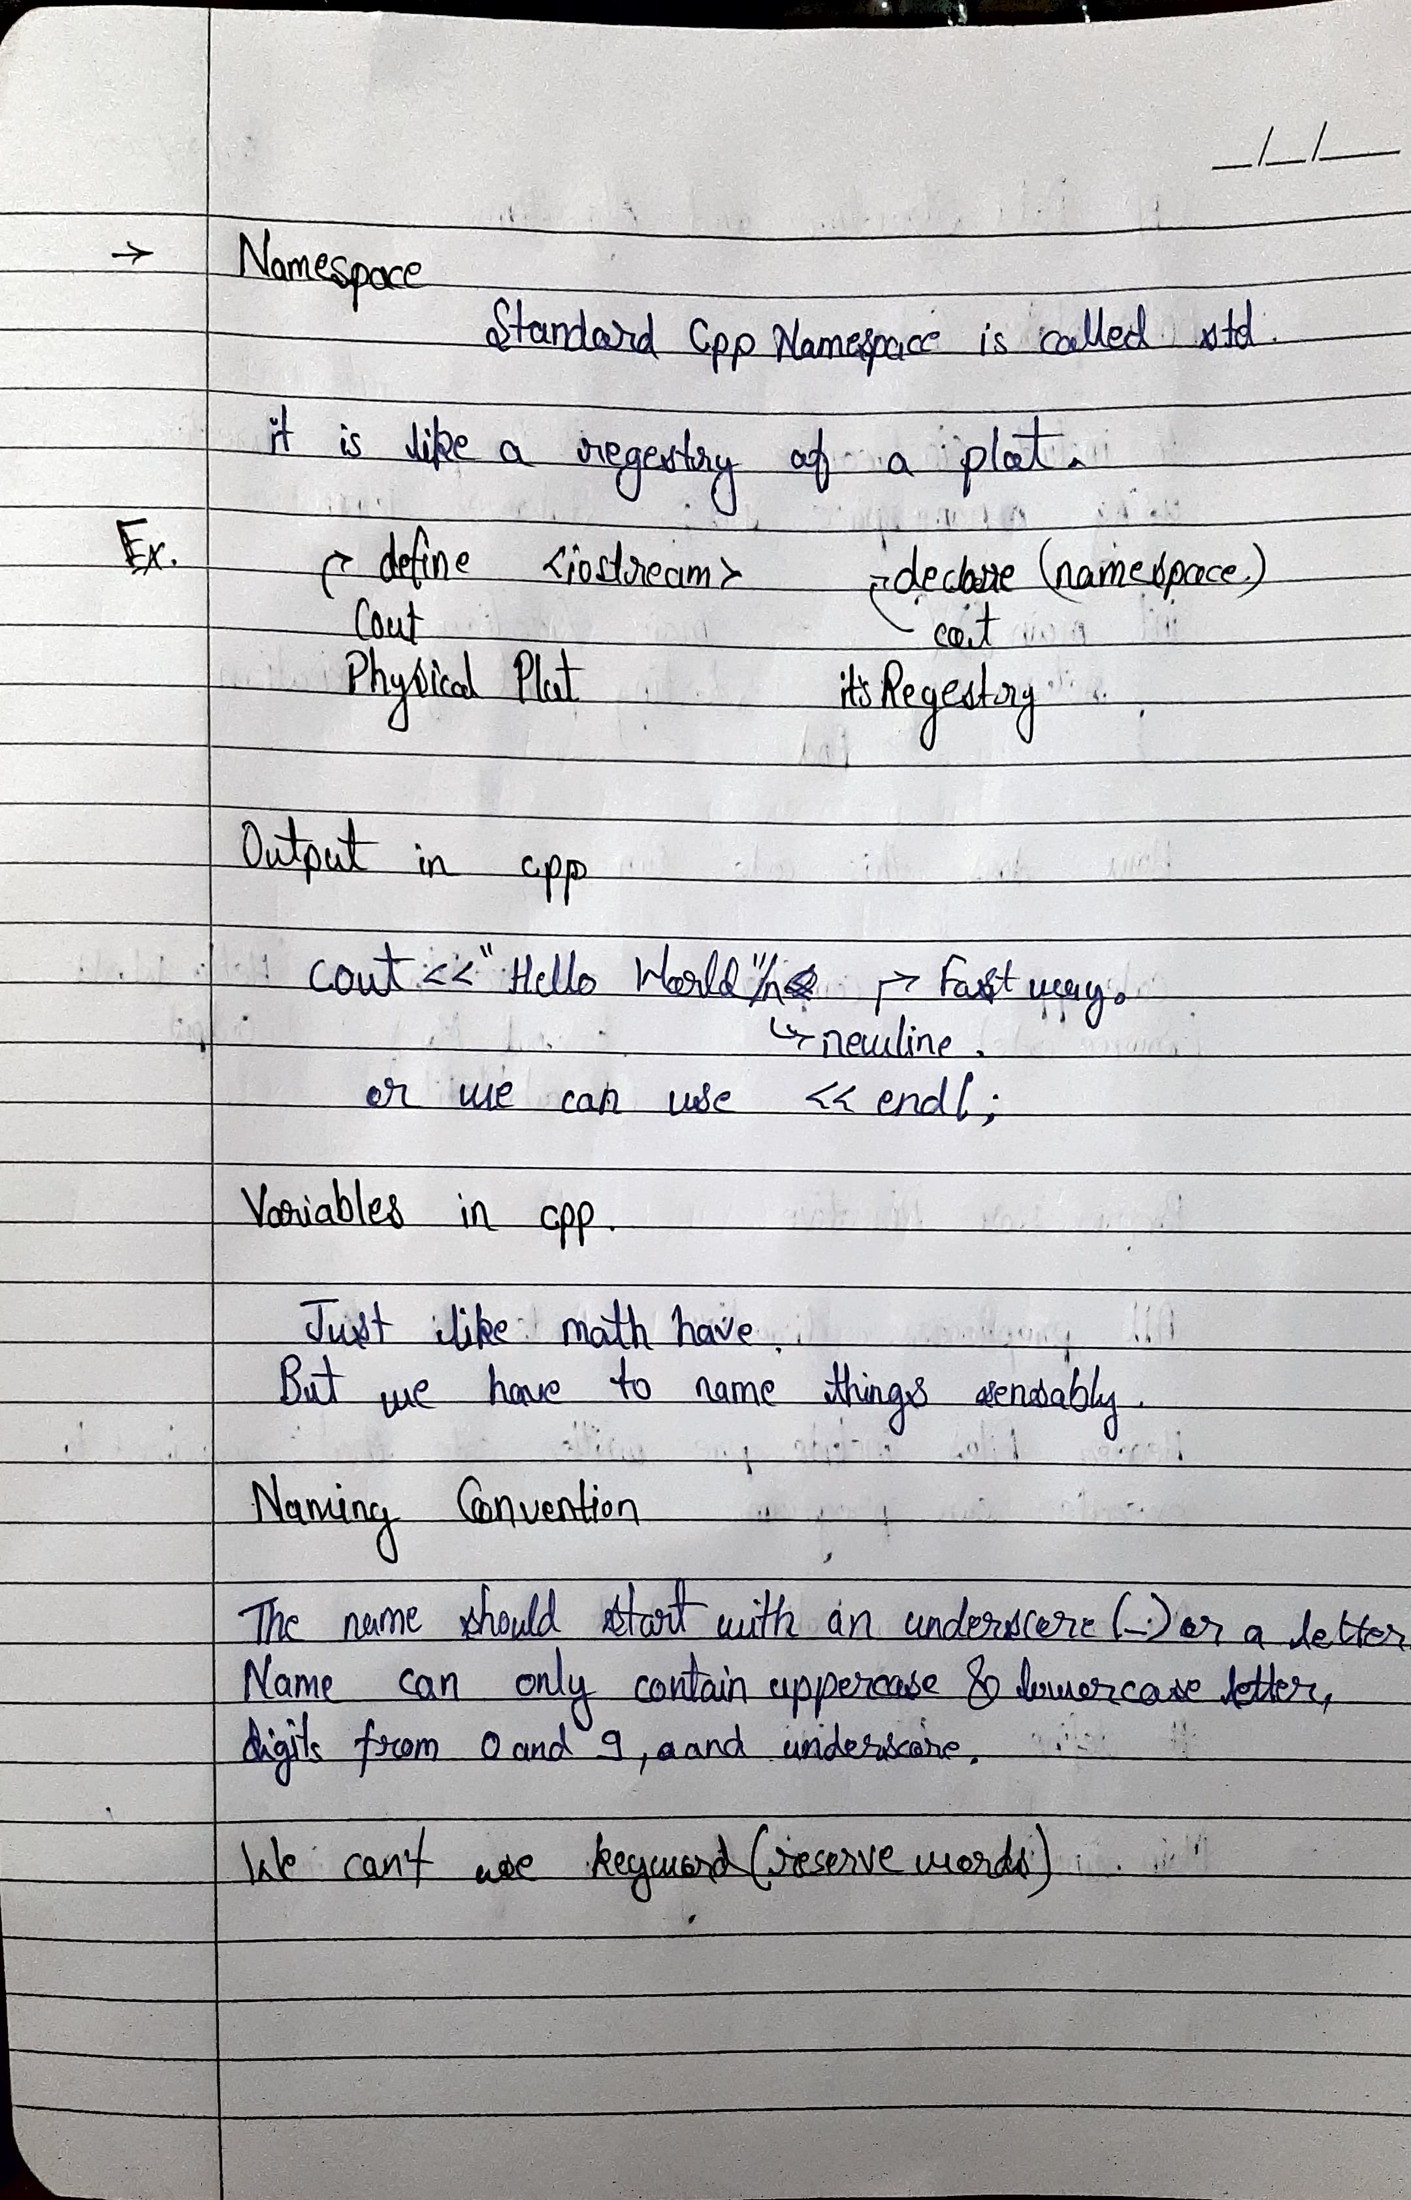 _/_/__
→ Namespace
Standard Cpp Namespace is called std.
it is like a regestry of a plot.
Ex. define <iostream> declare (namespace)
Cout cout
Physical Plot its Regestry
Output in cpp
cout << "Hello World"/n → Fast way.
↳ newline.
or we can use << endl;
Variables in cpp.
Just like math have.
But we have to name things sensably.
Naming Convention
The name should start with an underscore (_) or a letter
Name can only contain uppercase & lowercase letter,
digits from 0 and 9, a and underscore.
We can't use keyword (reserve words)